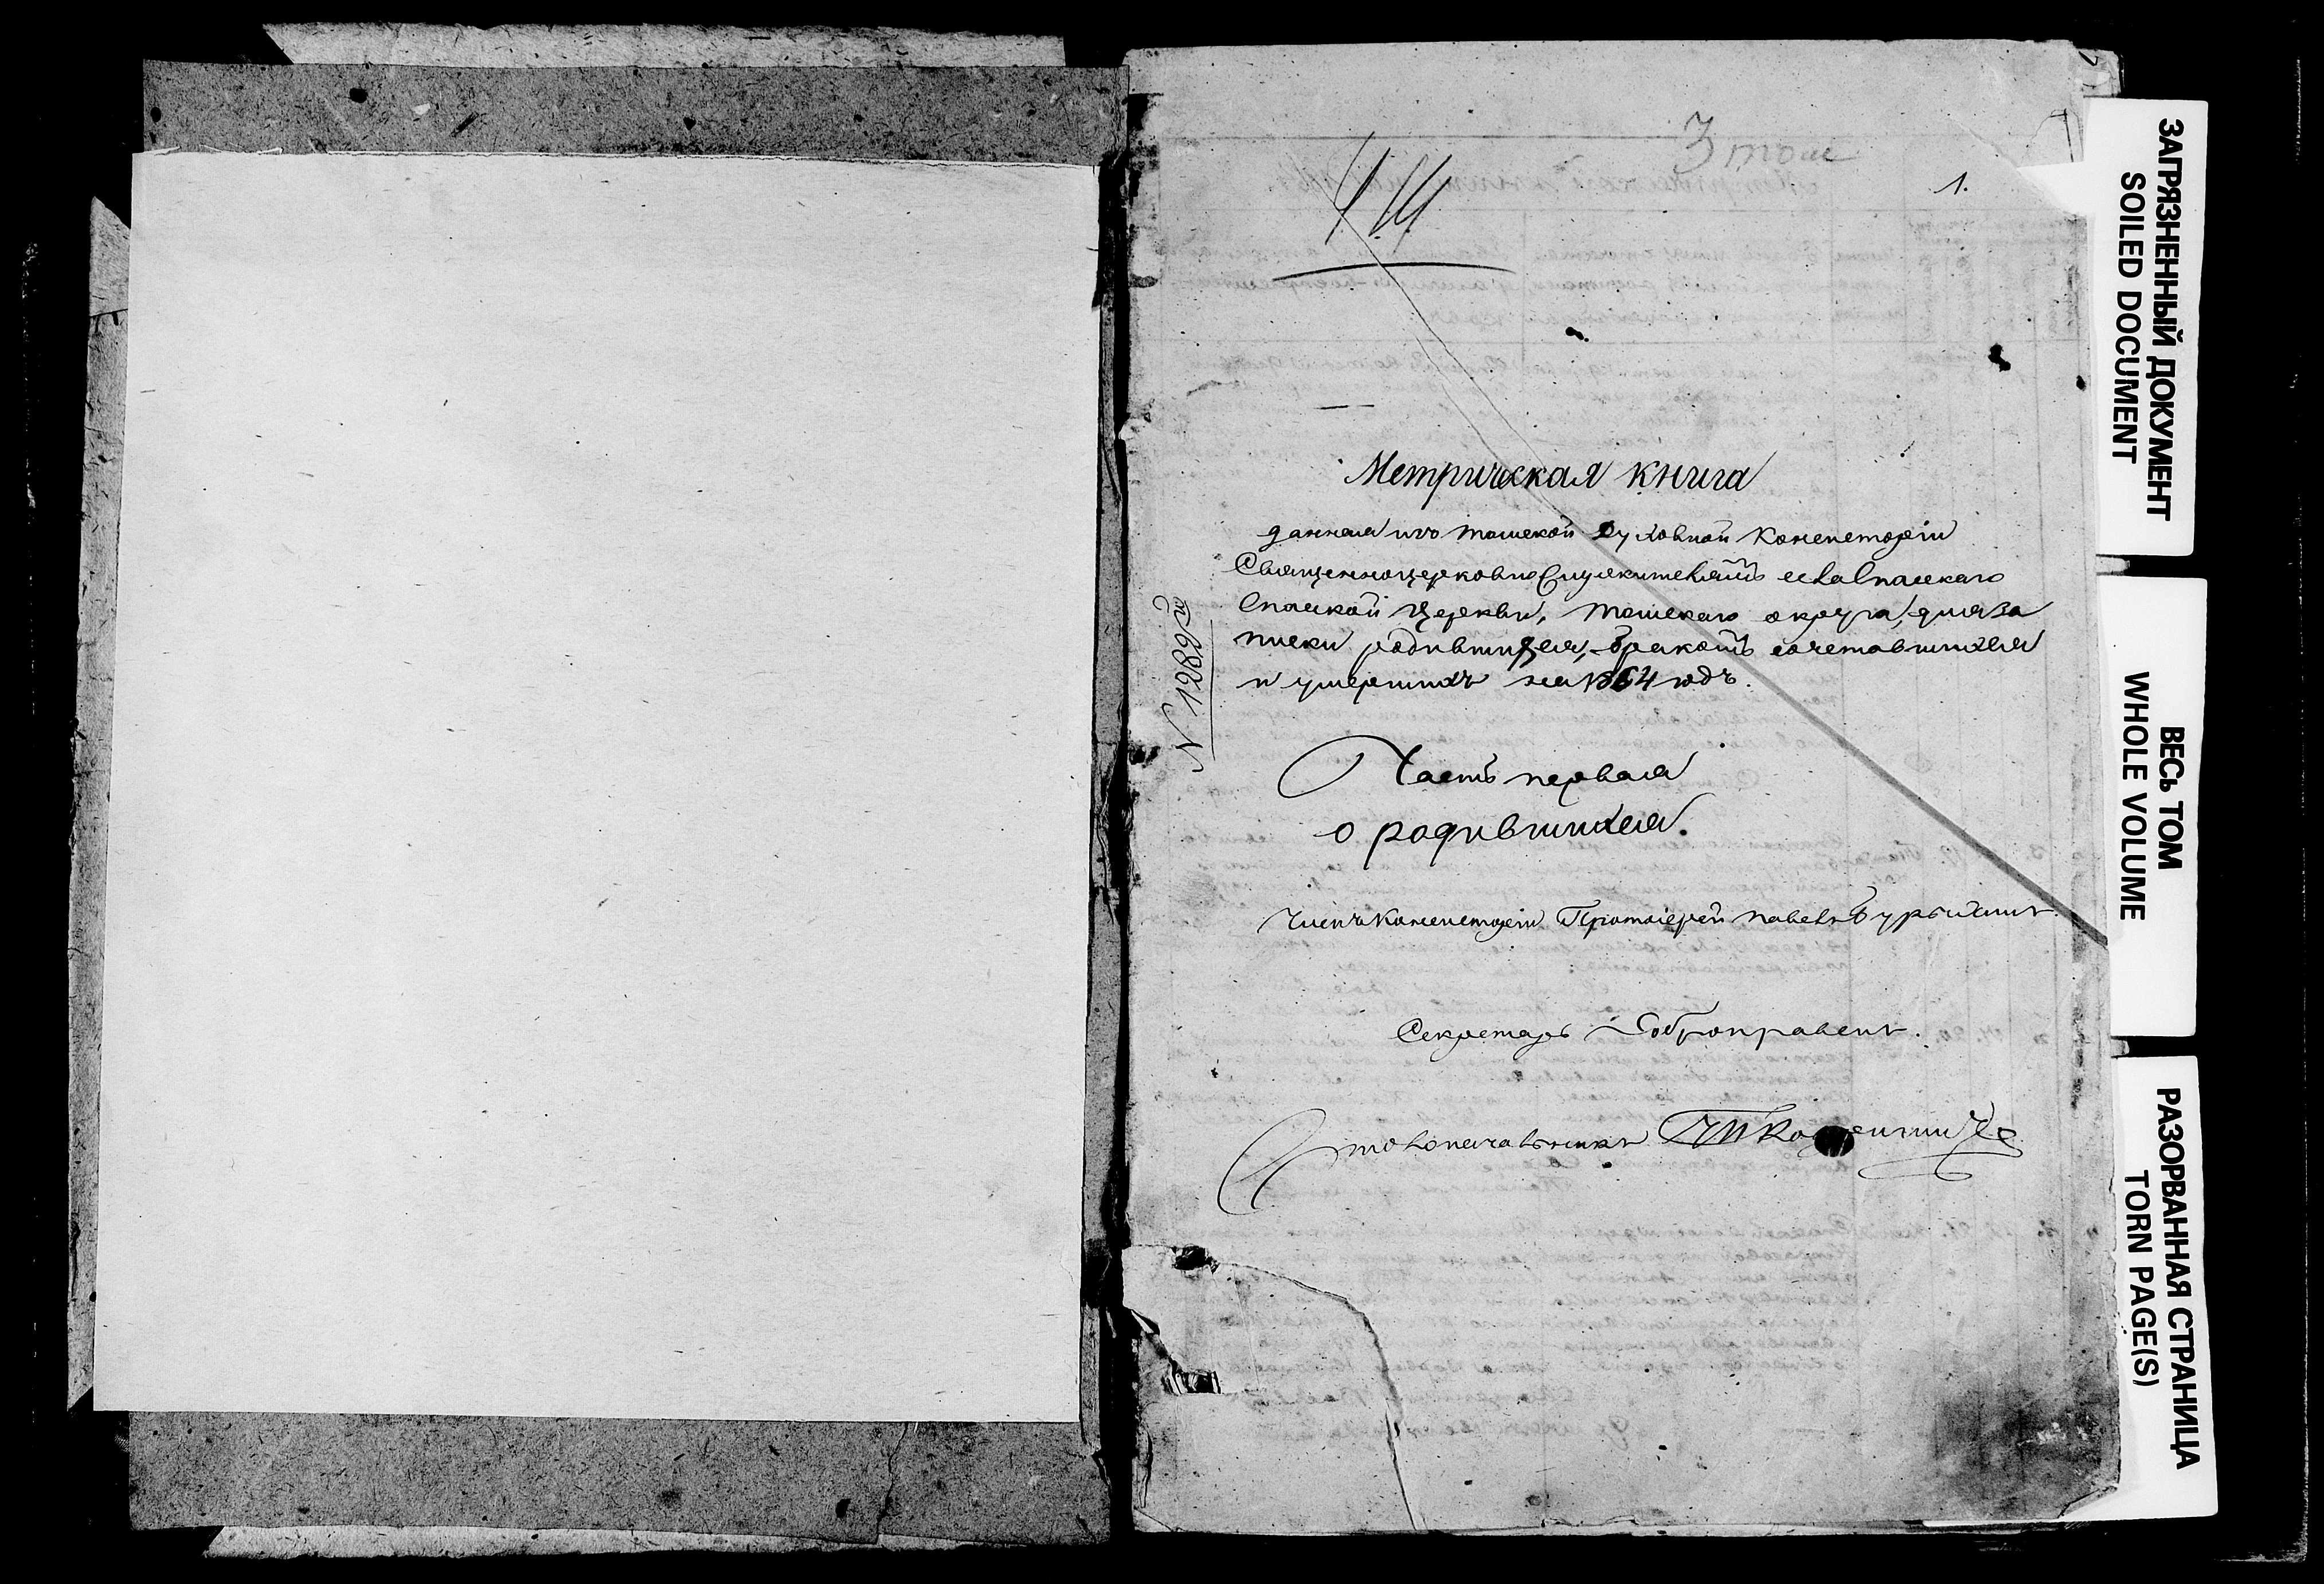 3 том
1.
Метрическая книга
данная изъ Томской Духовной Консисторіи
Священноцерковнослужителямъ села Спасскаго
Спасской Церкви, Томскаго округа, для за
писки родившихся, бракомъ сочетавшихся
и умершихъ на 1864 годъ.
N 12886й
Часть первая
о родившихся.
Членъ Консисторіи Протоіерей Павелъ
Секретарь Добронравовъ.
Столоначальникъ
ЗАГРЯЗНЕННЫЙ ДОКУМЕНТ
SOILED DOCUMENT
ВЕСЬ ТОМ
WHOLE VOLUME
РАЗОРВАННАЯ СТРАНИЦА
TORN PAGE(S)